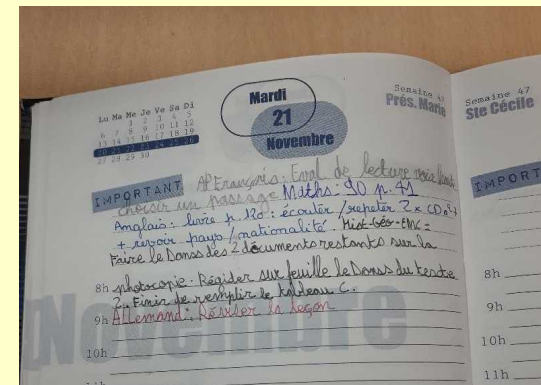 Lu Ma Me Je Ve Sa Di
1 2 3 4 5
6 7 8 9 10 11 12
13 14 15 16 17 18 19
20 21 22 23 24 25 26
27 28 29 30
Mardi
21
Novembre
Semaine 47
Prés. Marie
Semaine 47
Ste Cécile
IMPORTANT AP Français: Eval de lecture voix haute
choisir un passage Maths: 90 p.41
Anglais: livre p.120: écouter / repeter 2x CD
+ revoir pays / nationalité. Hist-Géo-EMC=
Faire le Donss des 2 documents restants sur la
8h photocopie. Régider sur feuille le Donss du texte
2. Finir de remplir le tableau C.
9h Allemand: Réviser la leçon
10h
11h
Novembre
IMPORT
8h
9h
10h
11h